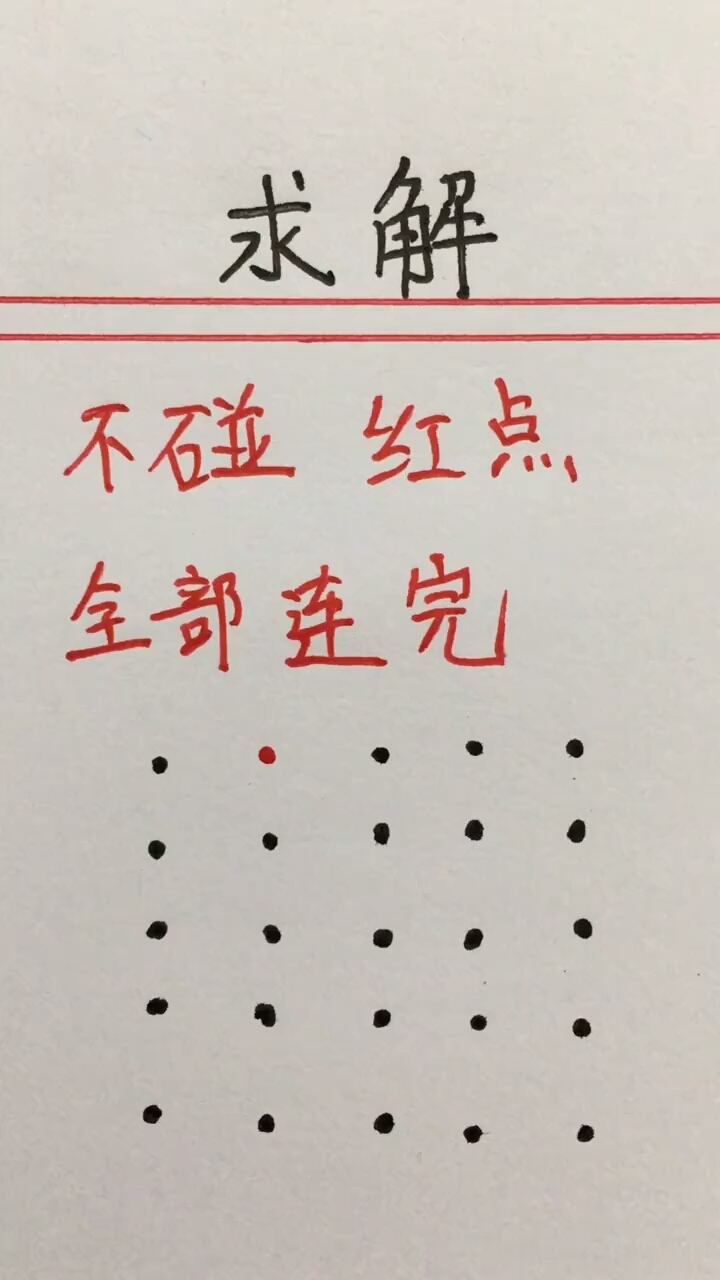 求解
不碰 红点
全部连完